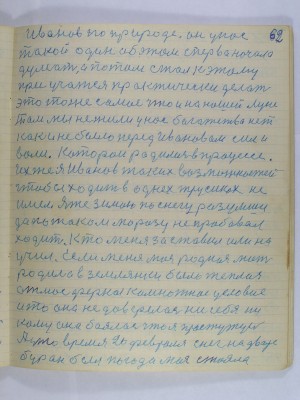 62
Иванов по природе. он у нас
такой один об этом сперва начали
думать, а потом стал к этому
приучатся практически делат
это тоже самое что и на нашей луне
там мы нет ни у нас богатства нет
как и не было перед Ивановам сил и
воли. Которая родилась в процессе.
Уже я Иванов таких возможностей
чтобы ходить в одних трусиках не
имел Я же зимою по снегу разумши
да по таком морозу не прабовал
ходит. Кто меня заставил или на
учил. Если меня моя родная мать
родила в землянки была теплая
атмосферная комнатное условие
и то она не доверялас ни себя ни
кому она баялас что я простужус
А в то время 20 февраля снег на дваре
буран был пагода моя стаяла